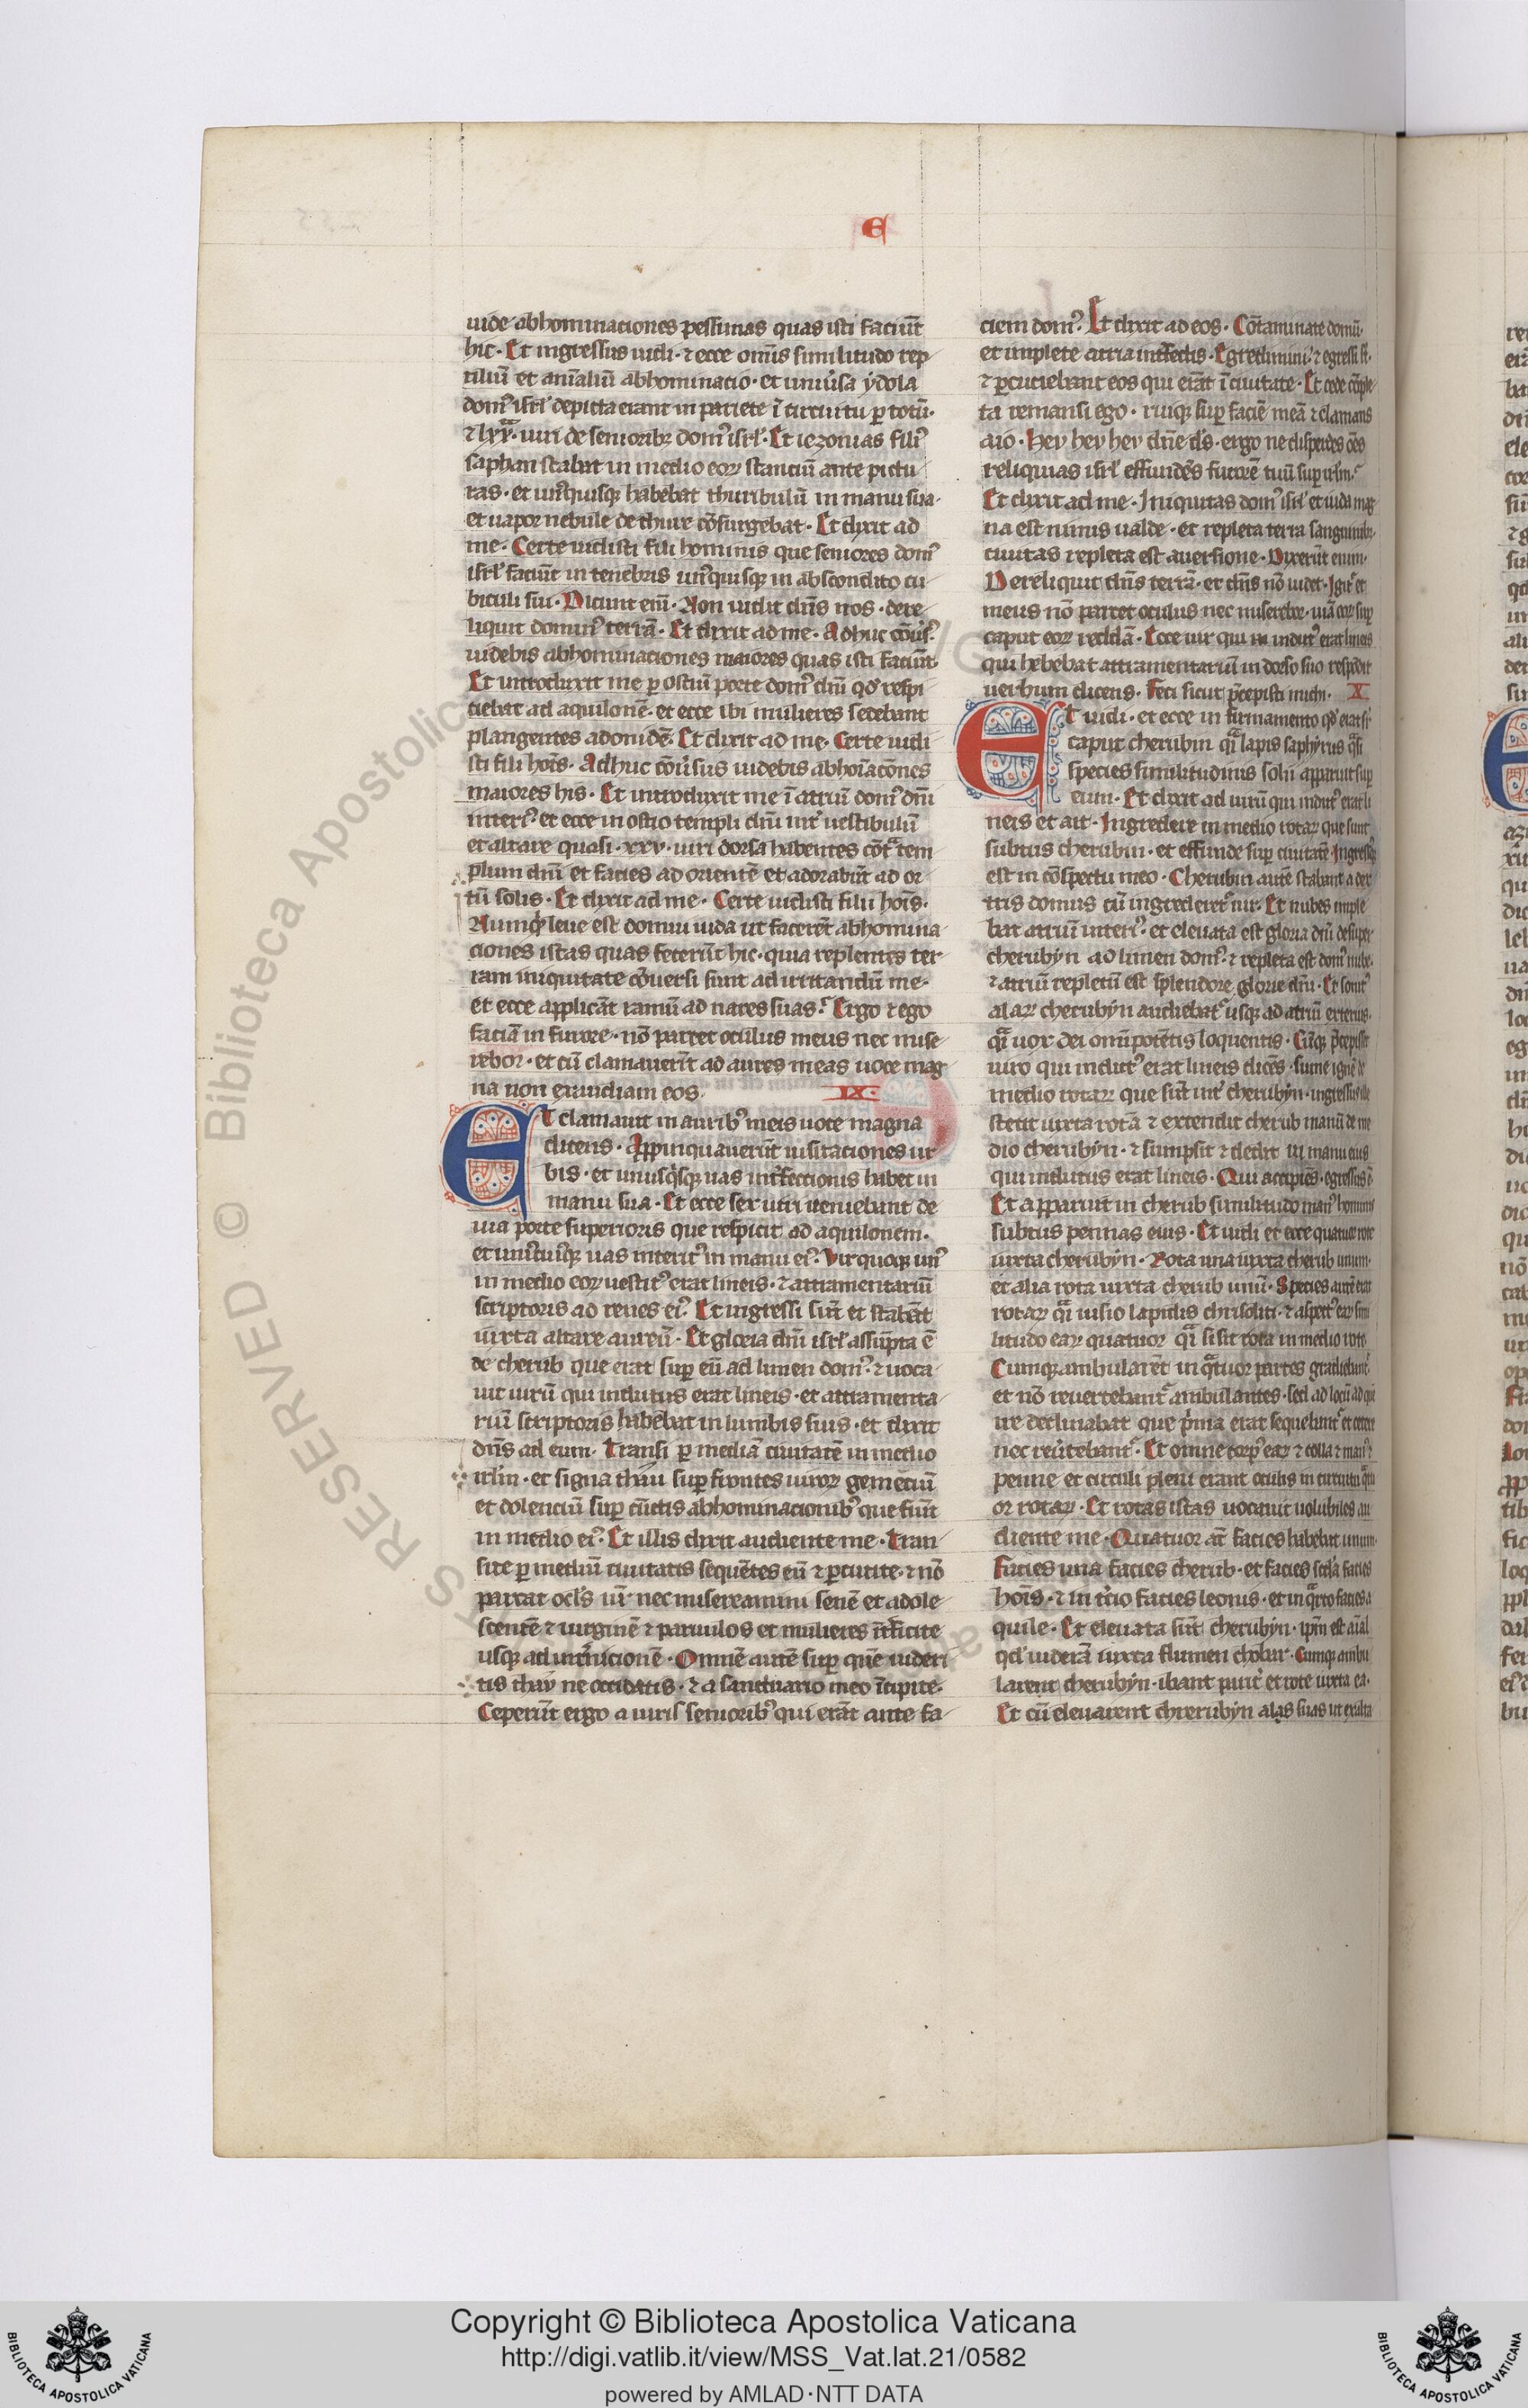 E
uide abhominaciones pessimas quas isti faciu̅t
hic · Et ingressus uidi · ⁊ ecce om̅is similitudo rep
tiliu̅ et ani̅aliu̅ abhominacio · et uniu̓sa ydola
domꝰ isrl̅ depicta erant in pariete i̅ circuitu ꝑ totu̅ ·
⁊ lxx · uiri de senioribꝫ domꝰ isrl̅ · Et iezonias filiꝰ
saphan stabat in medio eoꝝ stanciu̅ ante pictu
ras · et unꝰquisqꝫ habebat thuribulu̅ in manu sua ·
et uapor nebule de thure co̅surgebat · Et dixit ad
me · Certe uidisti fili hominis que seniores domꝰ
isrl̅ faciu̅t in tenebris unꝰquisqꝫ in abscondito cu
biculi sui · Dicunt eni̅ · Non uidit dn̅s nos · dere
liquit dominꝰ terra̅ · Et dixit ad me · Adhuc co̅u̓sꝰ
uidebis abhominaciones maiores quas isti faciu̅t ·
Et introduxit me ꝑ ostiu̅ porte domꝰ dn̅i qd̓ respi
ciebat ad aquilone̅ · et ecce ibi mulieres sedebant
plangentes adonide̅ · Et dixit ad me · Certe uidi
sti fili hoi̅s · Adhuc co̅u̓sus uidebis abhoi̅aco̅nes
maiores his · Et introduxit me i̅ atriu̅ domꝰ dn̅i
interiꝰ et ecce in ostio templi dn̅i int̓ uestibulu̅
et altare quasi · xxv · uiri dorsa habentes co̅t̓ tem
plum dn̅i et facies ad oriente̅ et adorabu̅t ad or
tu̅ solis · Et dixit ad me · Certe uidisti filii hoi̅s ·
Numqͥd leue est domui iuda ut facere̅t abhomina
ciones istas quas feceru̅t hic · quia replentes ter
ram iniquitate co̅uersi sunt ad irritandu̅ me ·
et ecce applica̅t ramu̅ ad nares suas · Ergo ⁊ ego
facia̅ in furore · no̅ parcet oculus meus nec mise
rebor · et cu̅ clamaueri̅t ad aures meas uoce mag
na non exaudiam eos · IX ·
Et clamauit in auribꝰ meis uoce magna
dicens · Appinquauerut̅ uisitaciones ur
bis · et unusqͥsqꝫ uas int̓fectionis habet in
manu sua · Et ecce sex uiri ueniebant de
uia porte superioris que respicit ad aquilonem ·
et uniꝰcuiusqꝫ uas interitꝰ in manu eiꝰ · Vir quoqꝫ unꝰ
in medio eoꝝ uestitꝰ erat lineis · ⁊ attramentariu̅
scriptoris ad renes eiꝰ · Et ingressi su̅t et stabe̅t
iuxta altare aureu̅ · Et gloria dn̅i isrl̅ assu̅pta e̅
de cherub que erat suꝑ eu̅ ad limen domꝰ · ⁊ uoca
uit uiru̅ qui indutus erat lineis · et attramenta
riu̅ scriptoris habebat in lumbis suis · et dixit
dn̅s ad eum · Transi ꝑ media̅ ciuitate̅ in medio
irlm̅ · et signa thau suꝑ frontes uiroꝝ geme̅ciu̅
et dolenciu̅ suꝑ cu̅ctis abhominacionibꝰ que fiu̅t
in medio eiꝰ · Et illis dixit audiente me · Tran
site ꝑ mediu̅ ciuitatis seque̅tes eu̅ ⁊ ꝑcutite · ⁊ no̅
parcat ocl̅s ur̅ nec misereamini sene̅ et adole
scente̅ ⁊ uirgine̅ ⁊ paruulos et mulieres i̅t̓ficite
usqꝫ ad int̓nicione̅ · Omne̅ aute̅ suꝑ que̅ uideri
tis thau ne occidatis · ⁊ a sanctuario meo i̅cipite ·
Ceperu̅t ergo a uiris senioribꝰ qui era̅t ante fa
ciem domꝰ · Et dixit ad eos · Co̅taminate domu̅ ·
et implete atria int̓fectis · Egredimini · ⁊ egressi st̅ ·
⁊ ꝑcuciebant eos qui era̅t i̅ ciuitate · Et cede co̅ple
ta remansi ego · ruiqꝫ suꝑ facie̅ mea̅ ⁊ clamans
aio · Hey hey hey dn̅e ds̅ · ergo ne disperdes oe̅s
reliquias isrl̅ effunde̅s furore̅ tuu̅ suꝑ irlm̅ ·
Et dixit ad me · Iniquitas domꝰ isrl̅ et iuda mag
na est nimis ualde · et repleta terra sanguinibꝫ ·
ciuitas repleta est auersione · Dixeru̅t enim ·
Dereliquit dn̅s terra̅ · et dn̅s no̅ uidet · Igit̓ et
meus no̅ parcet oculus nec miserebor · uia̅ eoꝝ suꝑ
caput eoꝝ redda̅ · Ecce uir qui indutꝰ erat lineis
qui habebat attramentariu̅ in dorso suo respo̅dit
uerbum dicens · Feci sicut p̓cepisti michi · X
Et uidi · et ecce in firmamento qd̓ erat sꝰ
caput cherubin qͣi lapis saphyrus qͣsi
species similitudinis solii apparuit suꝑ
eum · Et dixit ad uiru̅ qui indutꝰ erat li
neis et ait · Ingredere in medio rotaꝝ que sunt
subtus cherubin · et effunde suꝑ ciuitate̅ · Ingressꝰqꝫ
est in co̅spectu meo · Cherubin aute̅ stabant a dex
tris domus cu̅ ingrederet̓ uir · Et nubes imple
bat atriu̅ interiꝰ · et eleuata est gloria dn̅i desuper
cherubyn ad limen domꝰ · ⁊ repleta est domꝰ nube ·
⁊ atriu̅ repletu̅ est splendore glorie dn̅i · Et sonitꝰ
alaꝝ cherubyn audiebat̓ usqꝫ ad atriu̅ exterius ·
qͣi uox dei omi̅pote̅tis loquentis · Cu̅qꝫ p̓cepisset
uiro qui indutꝰ erat lineis dice̅s · sume igne̅ de
medio rotaꝝ que su̅t int̓ cherubyn · ingressus ille
stetit iuxta rota̅ ⁊ extendit cherub manu̅ de me
dio cherubyn · ⁊ sumpsit ⁊ dedit in manu eius
qui indutus erat lineis · Qui accipie̅s · egressus e̅ ·
Et apparuit in cherub similitudo manꝰ hominis
subtus pennas eius · Et uidi et ecce quatuor rote
iuxta cherubyn · Rota una iuxta cherub unum ·
et alia rota iuxta cherub unu̅ · Species aute̅ erat
rotaꝝ qͣi uisio lapidis chrisoliti · ⁊ aspectꝰ eaꝝ simi
litudo eaꝝ quatuor qͣi si sit rota in medio rote
Cumqꝫ ambulare̅t in qͣtuor partes gradiebant̓
et no̅ reuertebant̓ ambulantes · sed ad locu̅ ad que̅
ire declinabat que p̓ma erat sequebant̓ et cetere
nec reu̓tebant̓ · Et omne corpꝰ eaꝝ ⁊ colla ⁊ manꝰ ⁊
penne et circuli pleni erant oculis in circuitu qͣtu
or rotaꝝ · Et rotas istas uocauit uolubiles au
diente me · Quatuor at̅ facies habebat unum ·
Facies una facies cherub · et facies scd̅a facies
hoi̅s · ⁊ in t̓cio facies leonis · et in qͣrto facies a
quile · Et eleuata su̅t cherubyn · ipm̅ est ai̅al
qd̓ uidera̅ iuxta flumen chobar · Cumqꝫ ambu
larent cherubyn · ibant parit̓ et rote iuxta ea ·
Et cu̅ eleuarent chrerubyn alas suas ut exalta
Copyright © Biblioteca Apostolica Vaticana
http://digi.vatlib.it/view/MSS_Vat.lat.21/0582
powered by AMLAD·NTT DATA
BIBLIOTECA APOSTOLICA VATICANA
BIBLIOTECA APOSTOLICA VATICANA